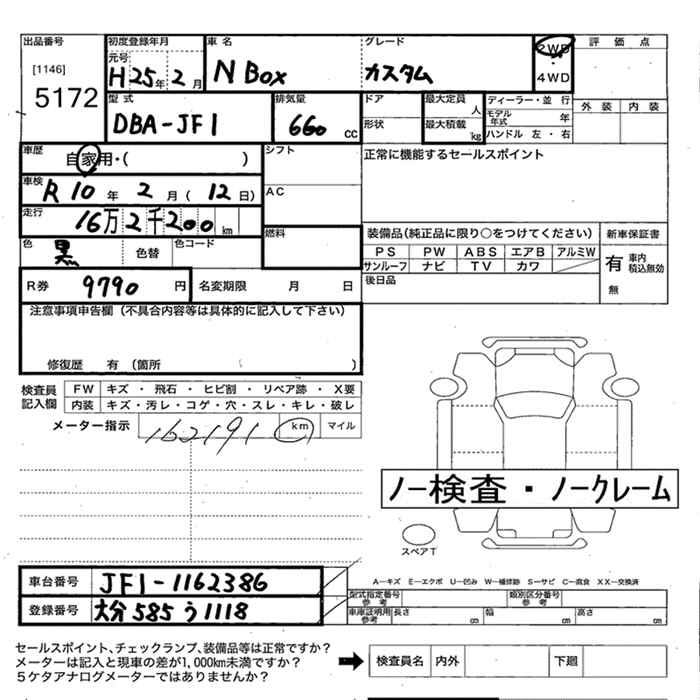 出品番号 初度登録年月 車名 グレード 評価点
[1146] 元号 H25年2月 N Box カスタム 2WD
5172 4WD
型式 排気量 ドア 最大定員 人 ディーラー・並行 外装 内装
DBA-JF1 660 cc 形状 最大積載 kg モデル年式 年
ハンドル 左・右
車歴 自家用・( ) シフト 正常に機能するセールスポイント
車検 R10年2月(12日) AC
走行 16万2千200km
色 黒 色替 色コード 燃料 装備品(純正品に限り○をつけてください) 新車保証書
PS PW ABS エアB アルミW 有 車内積込無効
サンルーフ ナビ TV カワ 無
R券 9790円 名変期限 月 日 後日品
注意事項申告欄(不具合内容等は具体的に記入して下さい)
修復歴 有(箇所 )
検査員記入欄 FW キズ・飛石・ヒビ割・リペア跡・X要
内装 キズ・汚レ・コゲ・穴・スレ・キレ・破レ
メーター指示 162191 km マイル
ノー検査・ノークレーム
スペアT
車台番号 JF1-1162386 A―キズ E―エクボ U―凹み W―補修跡 S―サビ C―腐食 XX―交換済
型式指定番号 参考 類別区分番号 参考
登録番号 大分585う1118 車庫証明用 参考 長さ cm 幅 cm 高さ cm
セールスポイント、チェックランプ、装備品等は正常ですか?
メーターは記入と現車の差が1,000km未満ですか? 検査員名 内外 下廻
5ケタアナログメーターではありませんか?